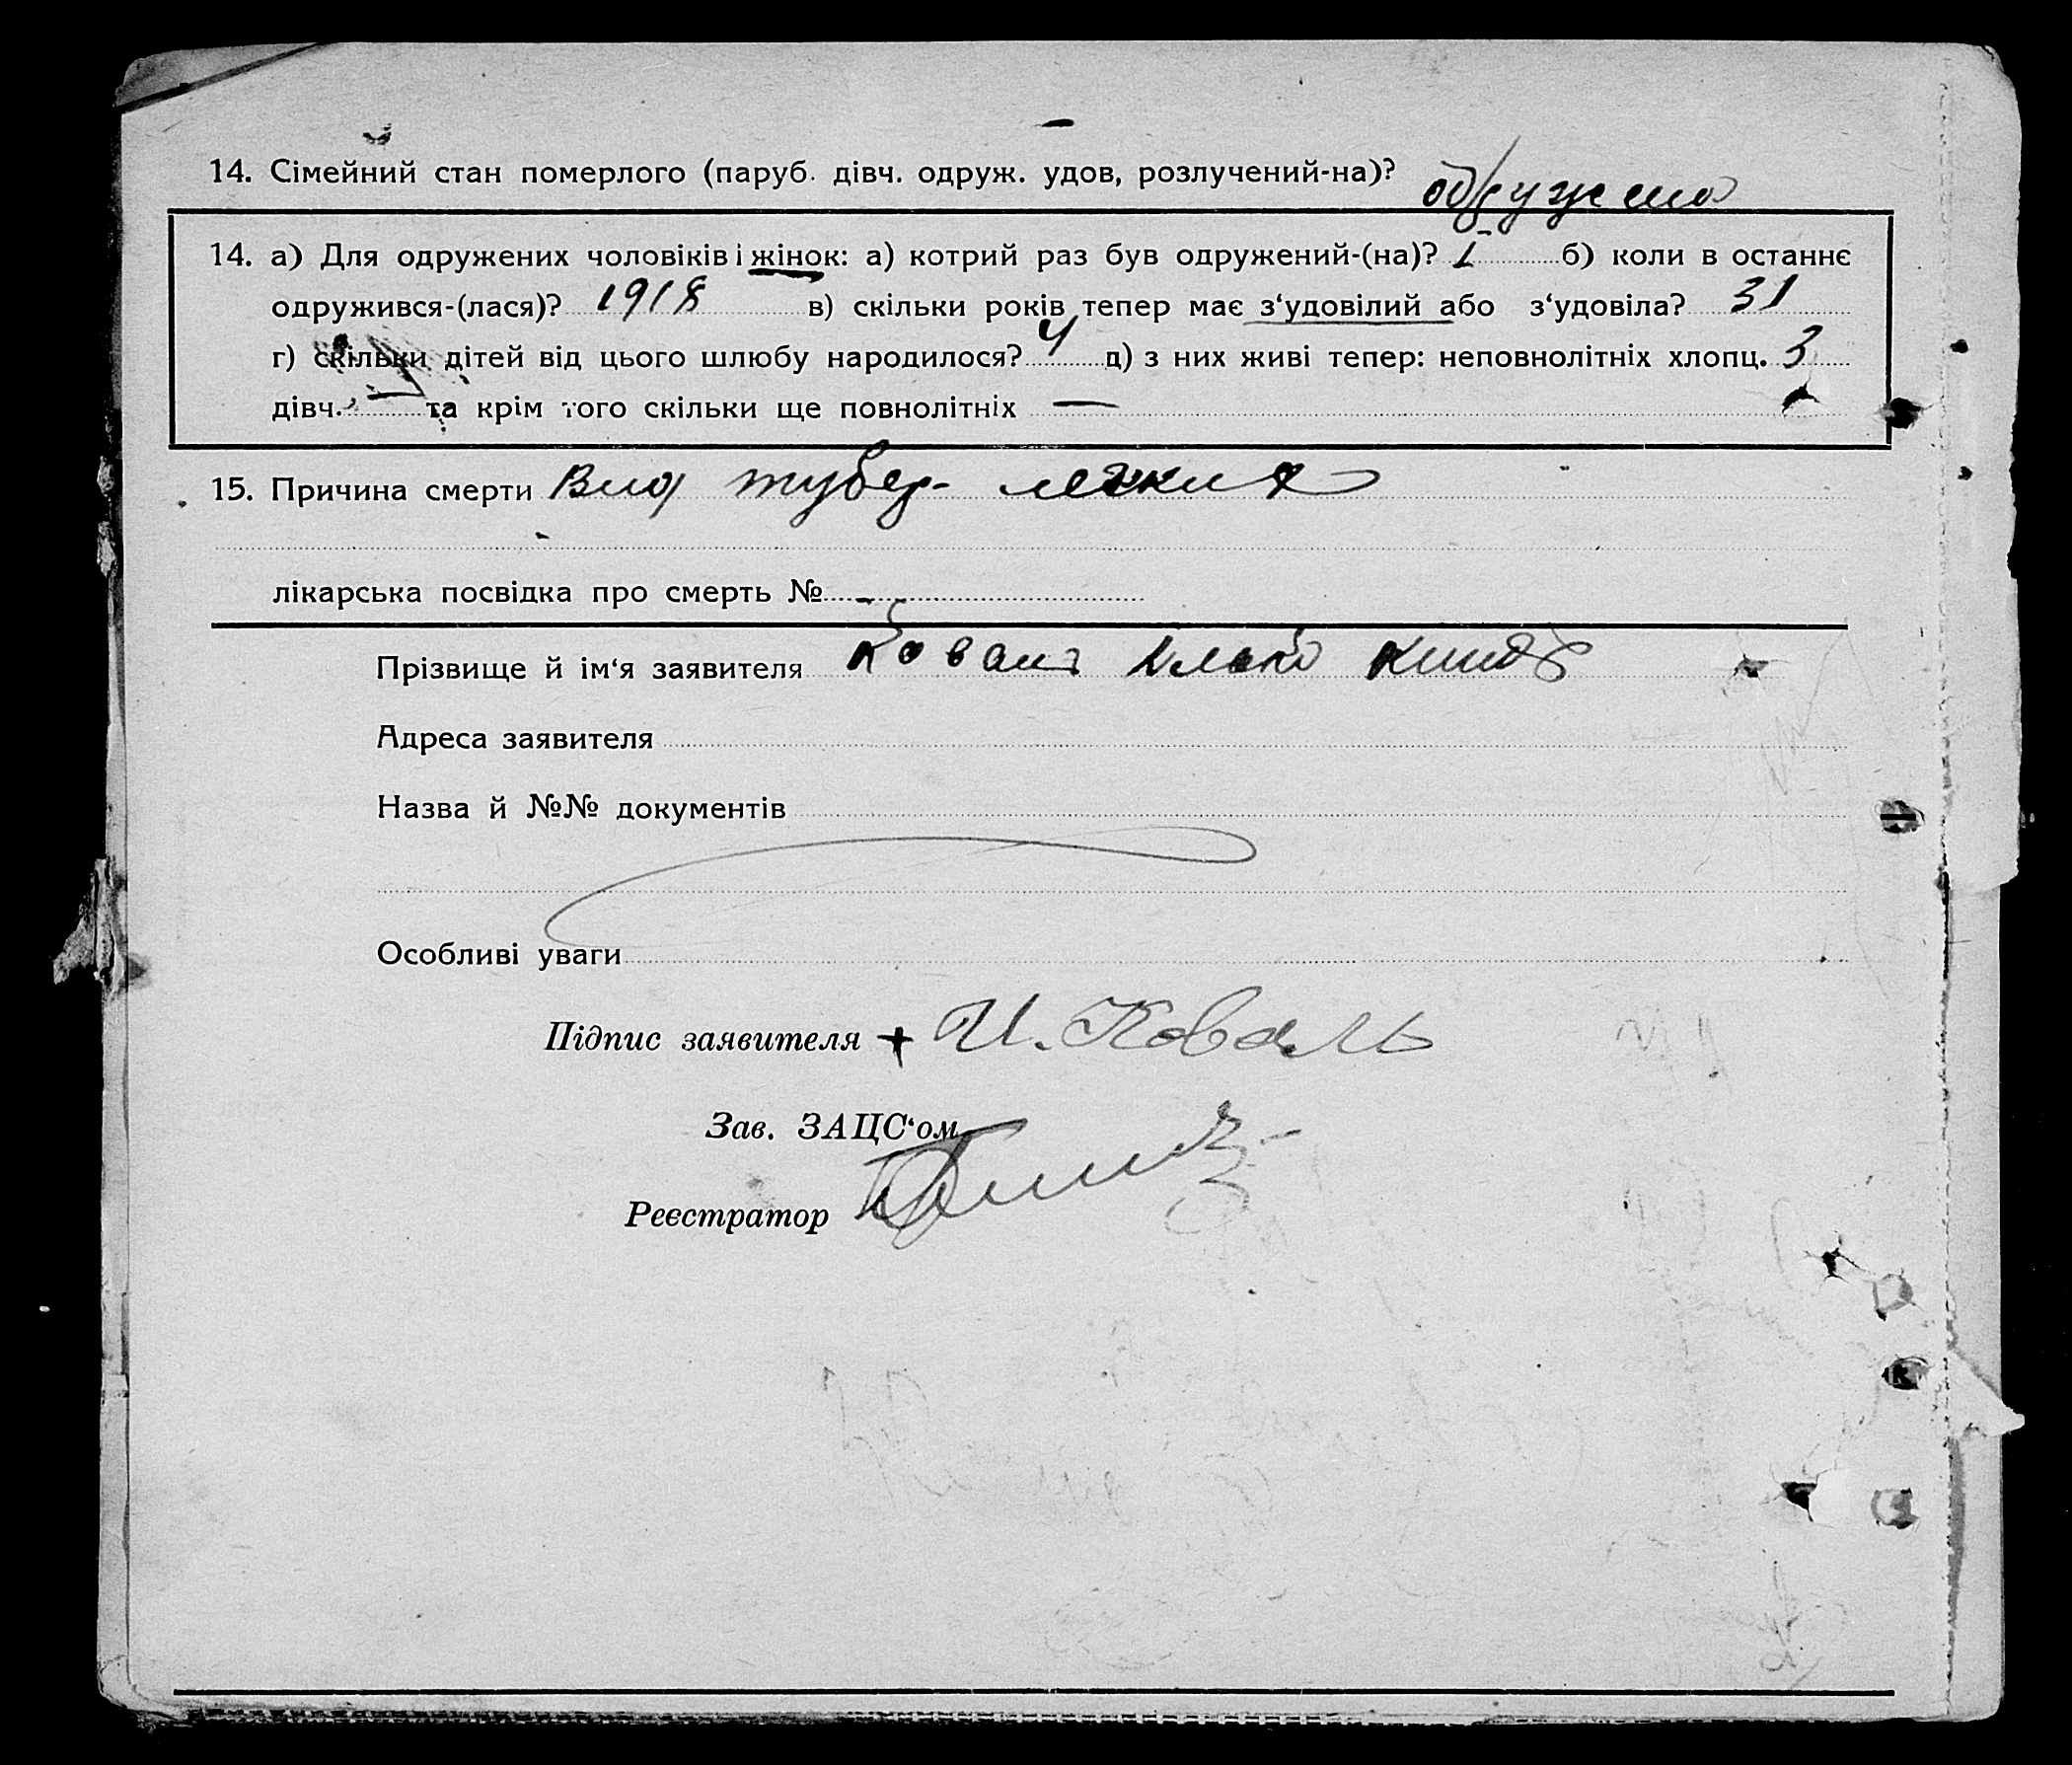 14. Сімейний стан померлого (паруб. дівч. одруж. удов, розлучений-на)? одружена
14. а) Для одружених чоловіків і жінок: а) котрий раз був одружений-(на)? I б) коли в останнє
одружився-(лася)? 1918 в) скільки років тепер має з‘удовілий або з‘удовіла? 31
г) скільки дітей від цього шлюбу народилося? 4 д) з них живі тепер: неповнолітніх хлопц. 3
дівч. — та крім того скільки ще повнолітніх —
15. Причина смерти Вид тубер- легких
лікарська посвідка про смерть №
Прізвище й ім‘я заявителя Коваль Илько
Адреса заявителя
Назва й №№ документів
Особливі уваги
Підпис заявителя + И. Коваль
Зав. ЗАЦС‘ом
Реєстратор